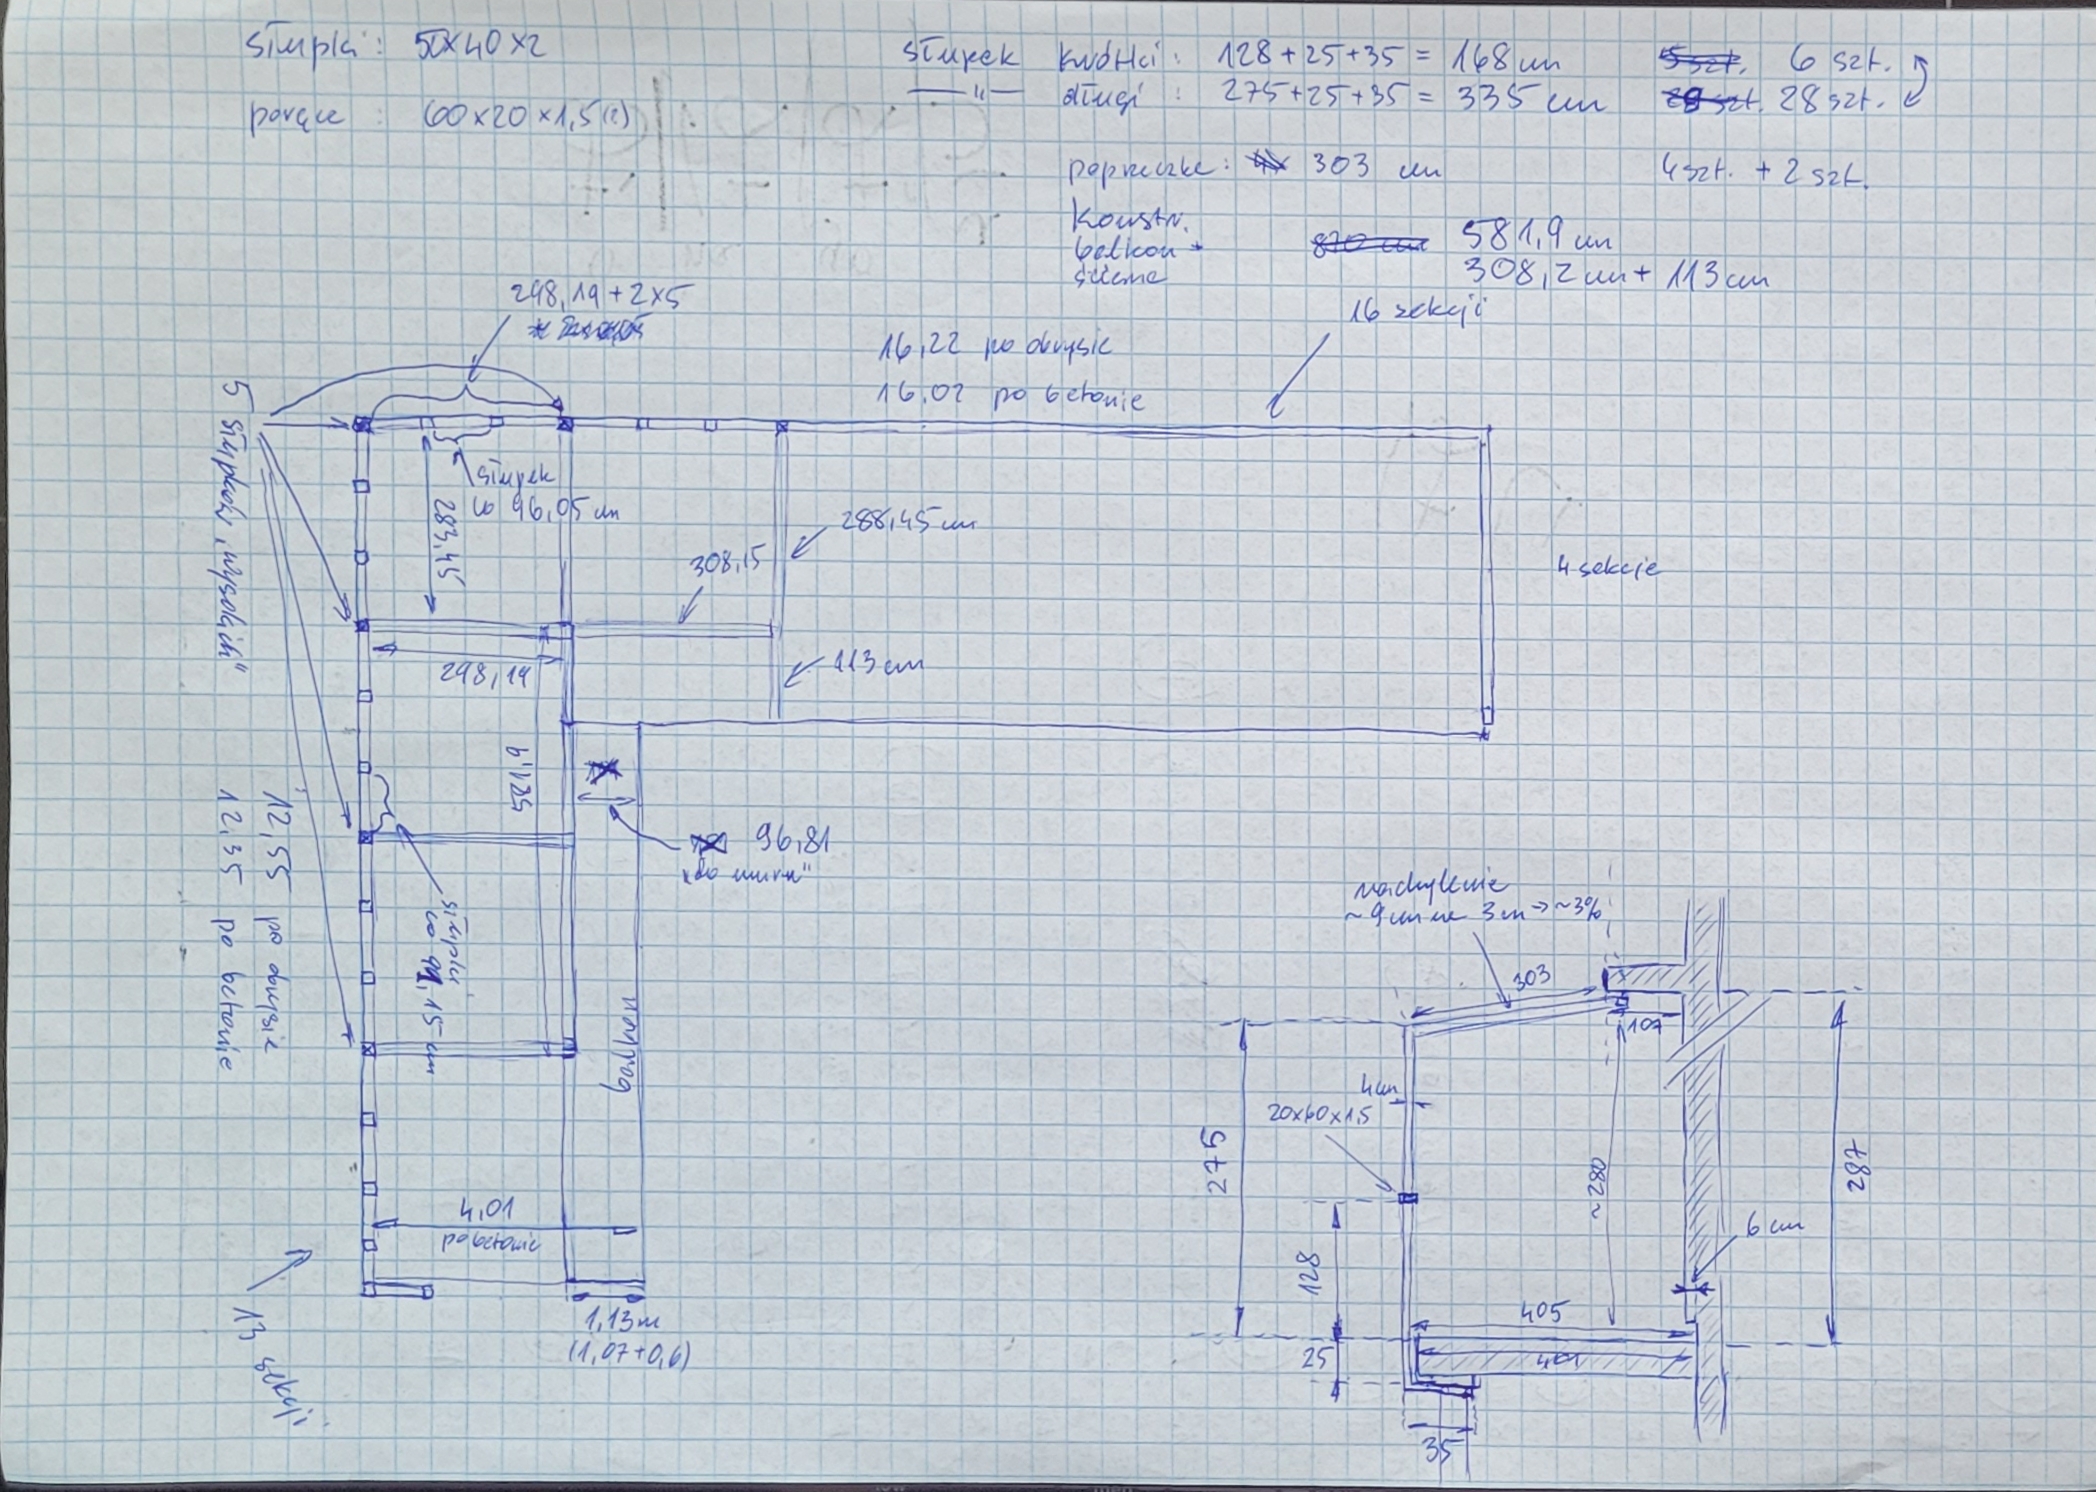 słupki: 50x40x2
poręcze: 60x20x1,5(2)
słupek krótki: 128+25+35 = 168 cm 5 szt. 6 szt.
—"— długi: 275+25+35 = 335 cm 28 szt.
poprzeczka: 303 cm 4 szt. + 2 szt.
Konstr.
balkon -
ściana
820 cm 581,9 cm
308,2 cm + 113 cm
298,19 + 2x5
16 sekcji
16,22 po obrysie
16,02 po betonie
5 słupków „wysokich"
słupek
co 96,05 cm
283,45
288,45 cm
308,15
4 sekcje
113 cm
298,19
581,9
96,81
„do muru"
12,55 po obrysie
12,35 po betonie
słupki
co 91,15 cm
4,01
po betonie
1,13m
(1,07+0,6)
13 sekcji
nachylenie
~9cm na 3m → ~3%
303
107
4cm
20x60x1,5
275
~280
287
128
6 cm
405
401
25
35